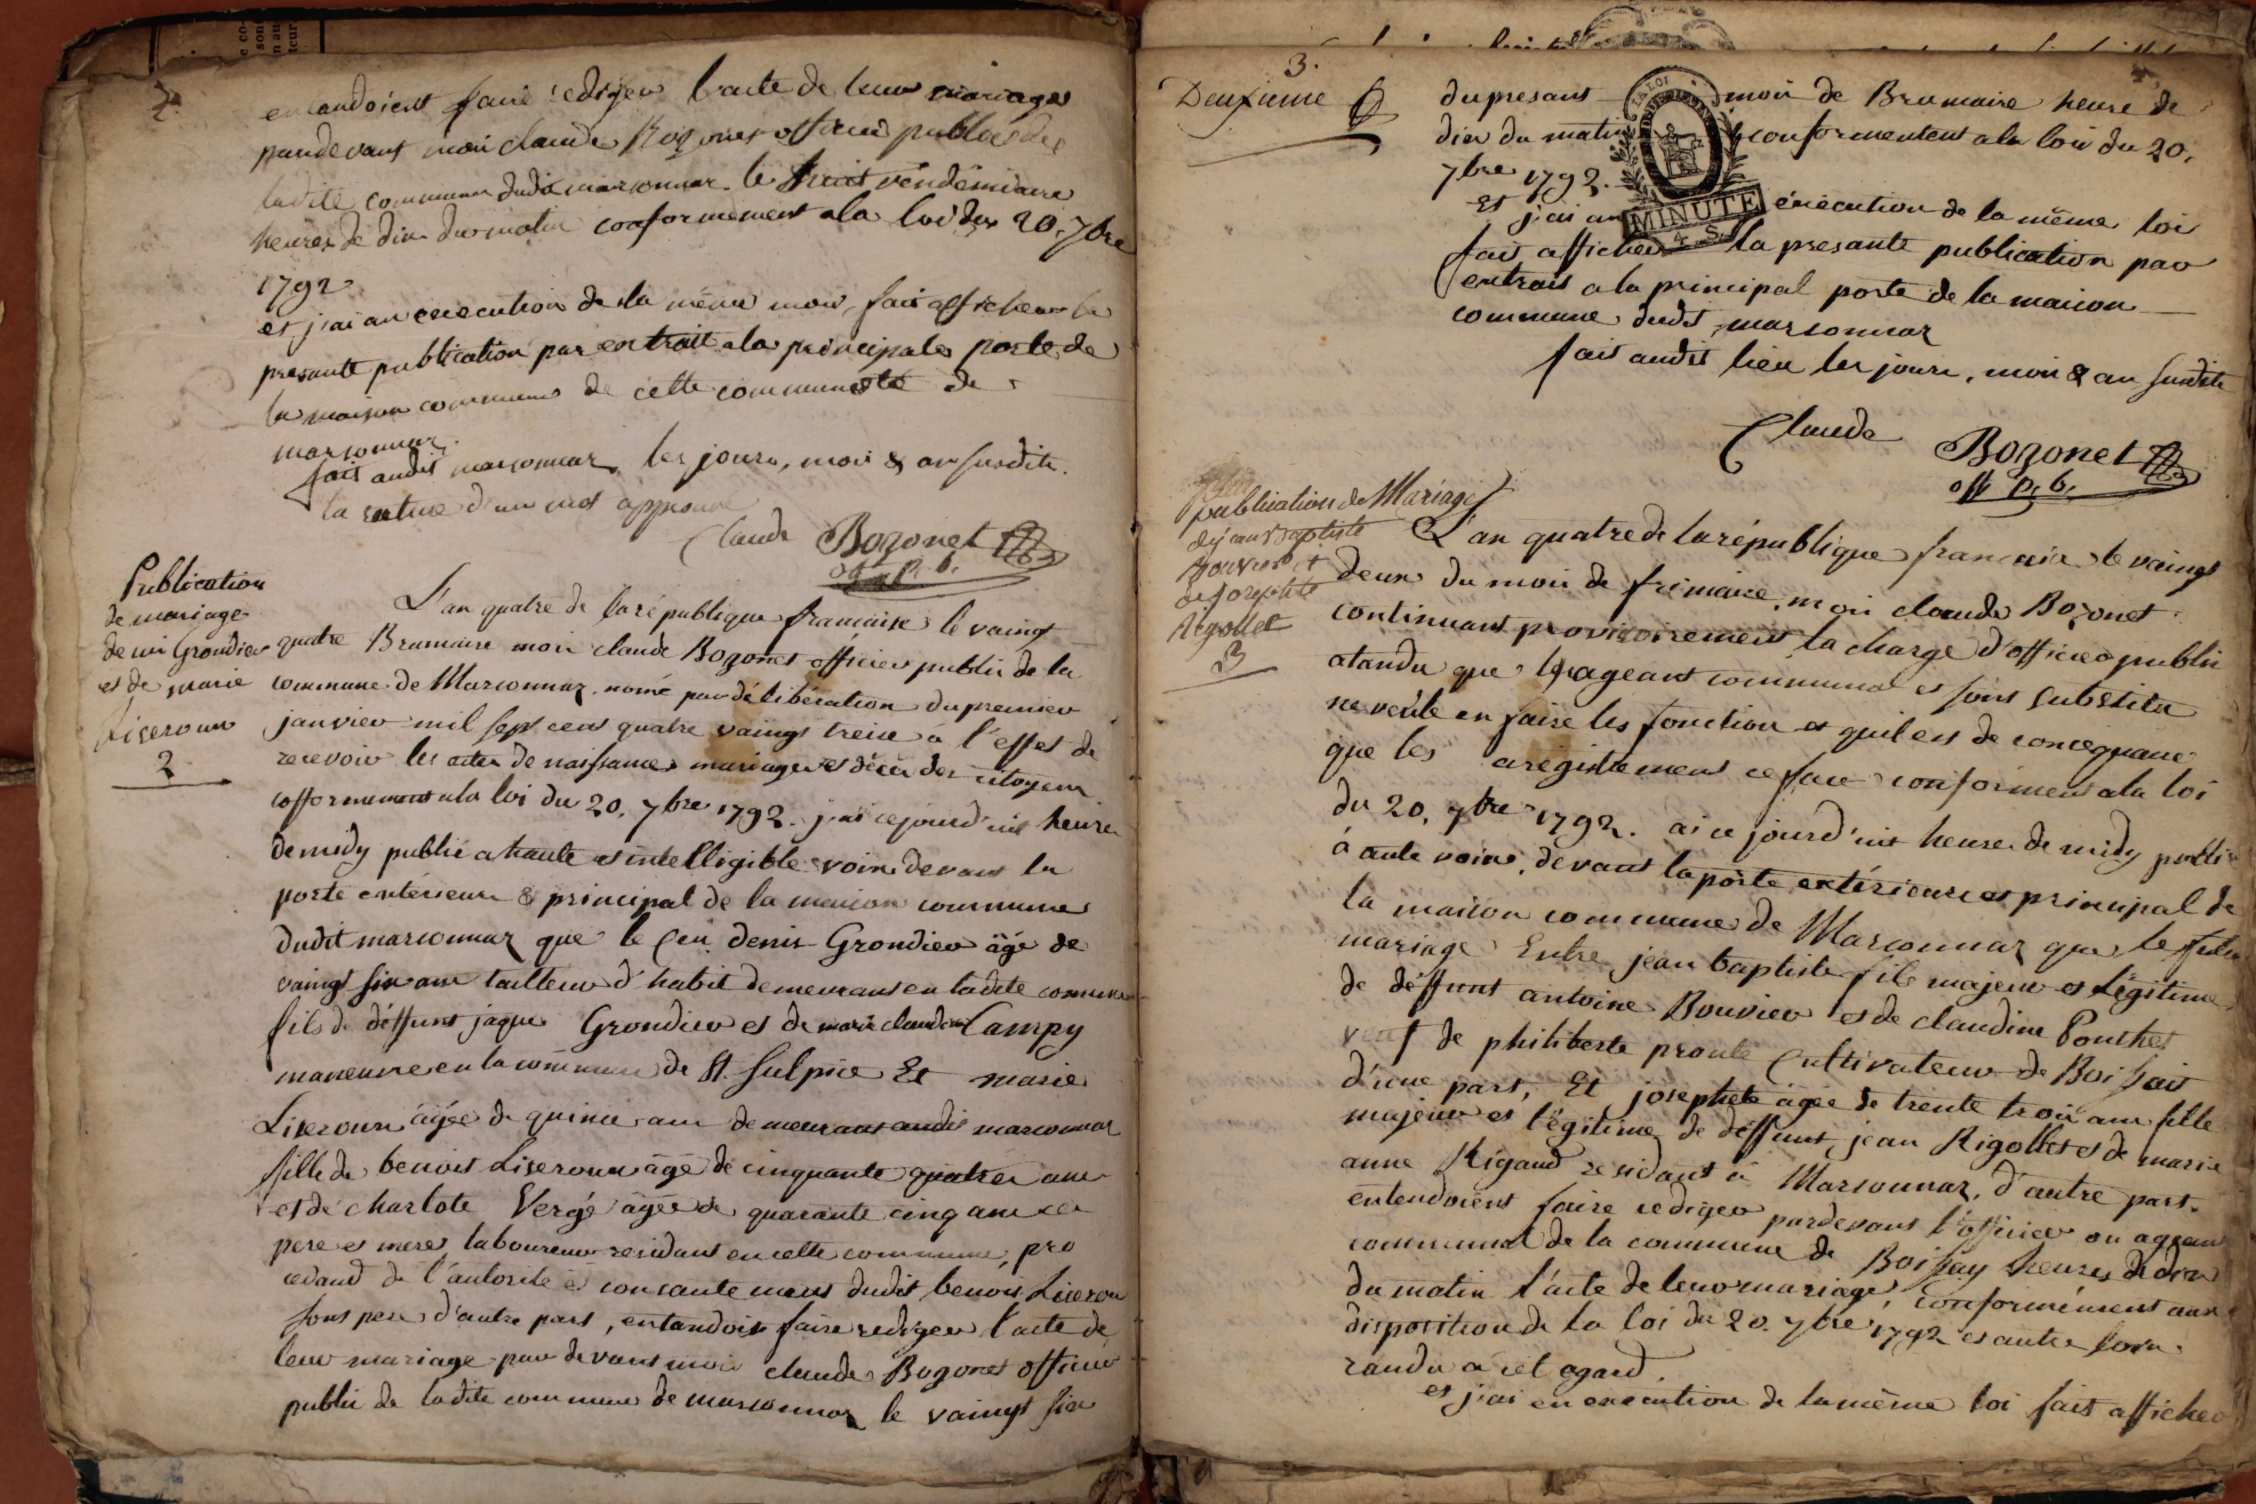 2.
entandoient faire rediger l'acte de leur mariages
pardevant moi claude Bozonet officier public de
ladite commune dudi marsonnaz le huit vendémiaire
heures de dix du matin conformement a la loi du 20. 7bre
1792
et j'ai an execution de la même moi, fait afficher la
presante publication par extrait a la principale porte de
la maison commune de cette communeté de
marsonnaz.
fait audit marsonnaz les jours, moi & an susdit.
la rature d'un mot approuvé
Claude Bozonet
off p. b.
Publication
de mariage
de ni Grondier
et de marie
Liseroux
2
L'an quatre de la république francaise le vaingt
quatre Brumaire moi claude Bozonet officier public de la
commune de Marsonnaz, nomé par délibération du premier
janvier mil sept cent quatre vaingt treise a l'effet de
recevoir les actes de naissances mariages et décès des citoyens
cofformement a la loi du 20. 7bre 1792. j'ai cejourd'uit heures
de midy publié a haute et intelligible voix devant la
porte exterieure & principal de la maison commune
dudit marsonnaz que le Cen denis Grondier âgé de
vaingt six ans tailleur d'habit demeurant en ladite commune
fils de déffunt jaque Grondier et de marie claudine Campy
maneuvre en la commune de St. Sulpice Et marie
Liseroux âgée de quinse ans demeurant audit marsonnaz
fille de benoit Liseroux âgé de cinquante quatre ans
et de charlote Vergé âgée de quarante cinq ans ces
pere et mere laboureur residant en cette commune, pro
cedand de l'autorité et consantement dudit benoit Liseroux
sont pere d'autre part, entandoit faire rediger l'acte de
leur mariage par devant moi claude Bozonet officier
public de ladite commune de marsonnaz le vaingt six
3.
Deuxieme
du presant moi de Brumaire heure de
dix du matin conformement a la loi du 20.
7bre 1792.
LA LOI
MINUTE
4. S.
Et j'ai an exécution de la même loi
fait afficher la presante publication par
extrait a la principal porte de la maison
commune dudit marsonnaz
fait audit lieu les jours, moi & an susdit
Claude Bozonet
off p. b.
publication de Mariage
de jean Baptiste
Bouvier et
de josephte
Rigollet
3
L'an quatre de la république francaise le vaingt
deux du mois de frimaire, moi claude Bozonet
continuant provisoirement la charge d'officier public
atandu que l'ageant communal et sont substitu
ne veule en faire les fonction et quil est de concequance
que les aregistrement ce face conforment a la loi
du 20. 7bre 1792. ai ce jourd'uit heure de midy publié
à aute voix, devant la porte extérieure et principal de
la maison commune de Marsonnaz que le futur
mariage Entre jean baptiste fils majeur et légitime
de déffunt antoine Bouvier et de claudine Ponthet
veuf de philiberte proute Cultivateur de Boissait
d'une part, Et josephte âgée de trente trois ans fille
majeur et légitime de déffunt jean Rigollet et de marie
anne Rigaud residant à Marsonnaz, d'autre part.
entendoient faire rediger pardevant l'officier ou agean
communal de la commune de Boissay heures de dix
du matin l'acte de leur mariage, conformément aux
disposition de la loi du 20. 7bre 1792 et autre loix
randu a cet egard.
et j'ai en execution de la même loi fait afficher